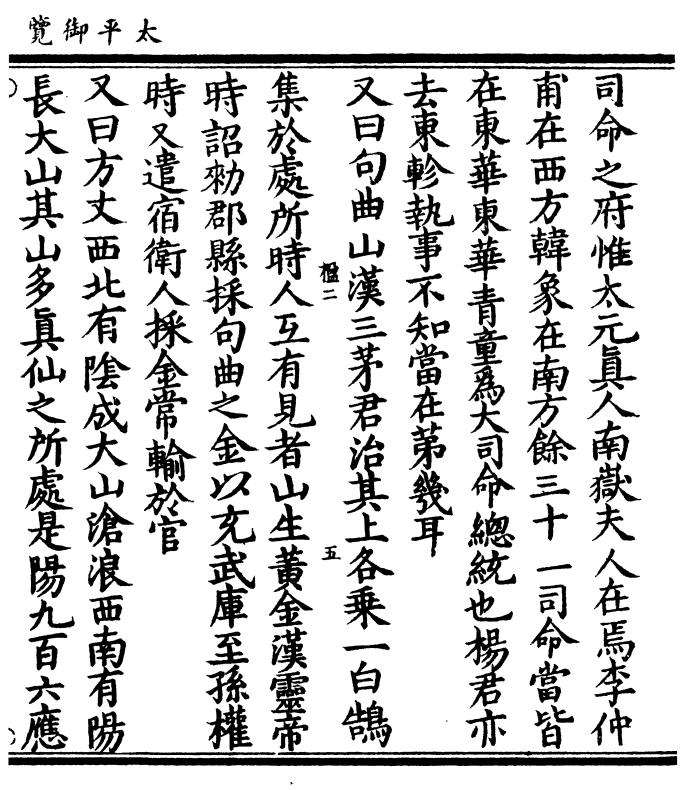 太平御覽
司命之府惟太元眞人南嶽夫人在焉李仲
甫在西方韓象在南方餘三十一司命當皆
在東華東華青童爲大司命總統也楊君亦
去東軫執事不知當在苐幾耳
又曰句曲山漢三茅君治其上各乗一白鵠
集於處所時人互有見者山生黃金漢靈帝
時詔勑郡縣採句曲之金以充武庫至孫權
時又遣宿衛人採金常輸於官
又曰方丈西北有陰成大山滄浪西南有陽
長大山其山多眞仙之所處是陽九百六應
榲二
五